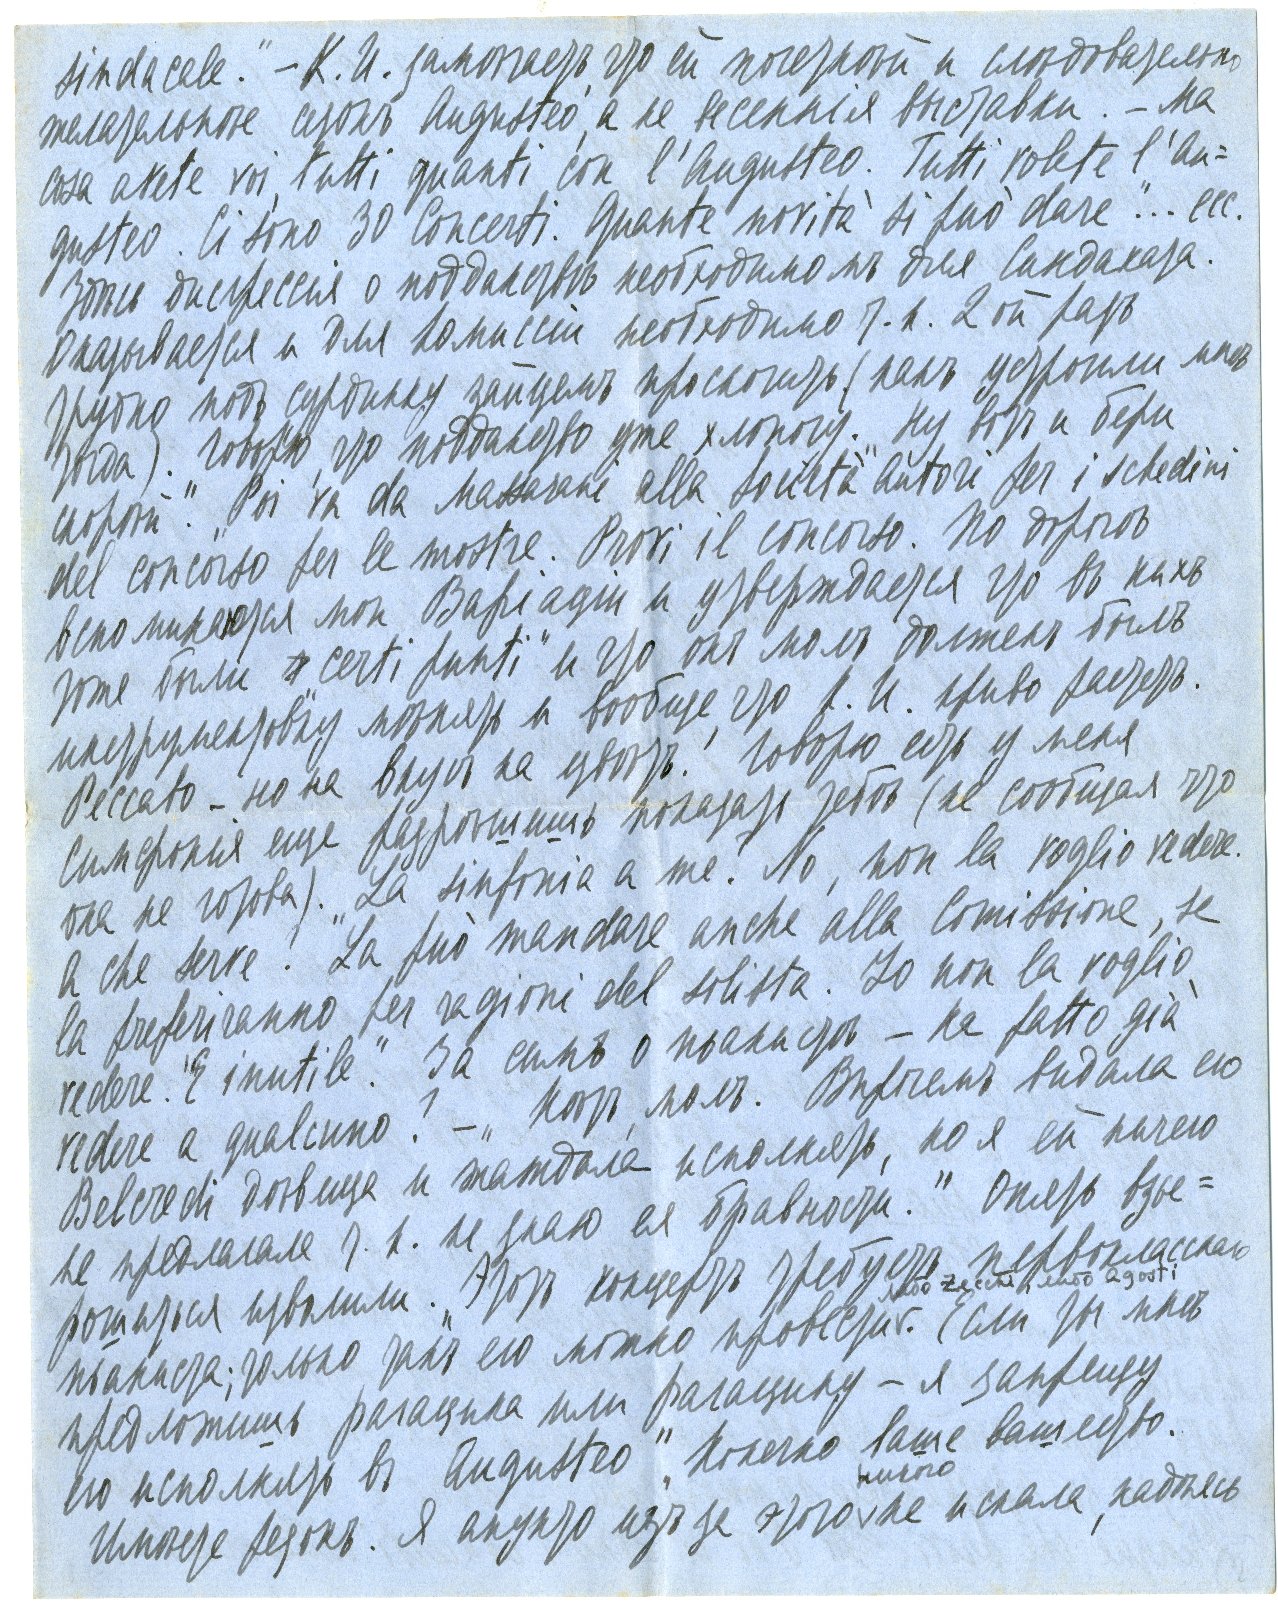 sindacale." – К. И. замѣчаетъ, что ей почетнѣй и слѣдовательно
желательнѣе сезонъ Augusteo, а не весеннія выставки. – Ma
cosa avete voi, tutti quanti con l'Augusteo. Tutti volete l'Au=
gusteo. Ci sono 30 Concerti. Quante novità si può dare"... ecc.
Здѣсь дигрессія о подданствѣ необходимомъ для Синдаката.
Оказывается и для Комиссіи необходимо т. к. 2ой разъ
трудно подъ сурдинку зайцемъ проскочить (какъ устроили мнѣ
тогда). Говорю, что подданство уже хлопочу. „Ну вотъ и бери
скорѣй." „Poi va da Massarani alla Società Autori per i schedini
del concorso per le mostre. Provi il concorso. По дорогѣ
вспоминаются мои Вапіаціи и утверждается что въ нихъ
тоже были „certi punti" и что онъ молъ долженъ былъ
инструментовку мѣнять и вообще, что К. И. криво растетъ.
Peccato – но на вкусъ на цвѣтъ! Говорю есть у меня
Симфонія еще разрѣшишь показать тебѣ (не сообщая что
она не готова). „La sinfonia a me! No, non la voglio vedere.
A che serve. La può mandare anche alla Comissione, se
la preferiranno per ragioni del solista. Io non la voglio
vedere. È inutile." За симъ о піанистѣ – ha fatto già
vedere a qualcuno? – „Нѣтъ, молъ. Впрочемъ видала его
Belcredi дѣвица и жаждала исполнять, но я ей ничего
не предлагала т. к. не знаю ея бравности." Опять взъе=
рошиться изволили. „Этотъ концертъ требуетъ первокласснаго
либо Zecchi, либо Agosti
піаниста; только такъ его можно провести. Если ты мнѣ
предложишь рагацина или рагацину – я запрещу
его исполнять въ Augusteo" „Конечно ваше вашество.
никого
Имѣете резонъ. Я анунто изъ за этого не искала, надѣясь